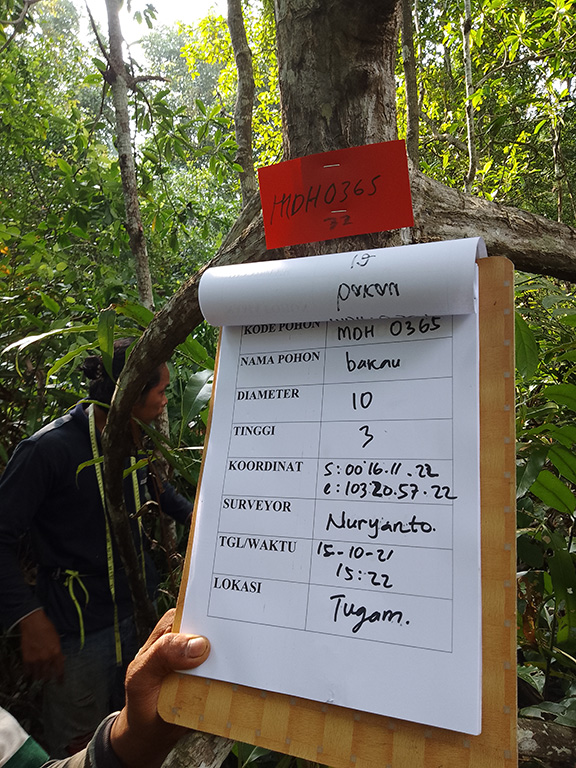 MDH0365
32
pokon
KODE POHON MDH 0365
NAMA POHON bakau
DIAMETER 10
TINGGI 3
KOORDINAT S:00.16.11.22
e:103.20.57.22
SURVEYOR Nuryanto.
TGL/WAKTU 15-10-21
15:22
LOKASI Tugam.